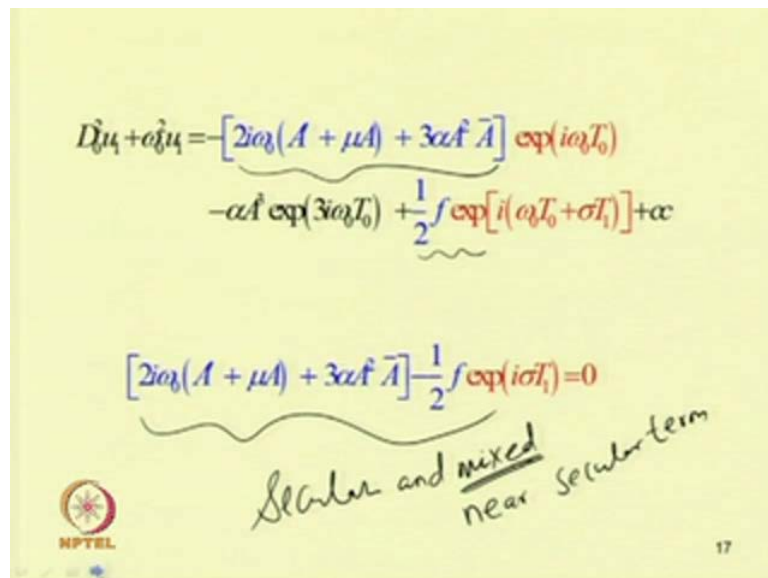 D₀²u₁ + ω₀²u₁ = -[2iω₀(A′ + μA) + 3αA² Ā] exp(iω₀T₀)
-αA³ exp(3iω₀T₀) + 1/2 f exp[i(ω₀T₀ + σT₁)] + cc
[2iω₀(A′ + μA) + 3αA² Ā] - 1/2 f exp(iσT₁) = 0
Secular and mixed
near secular term
NPTEL
17